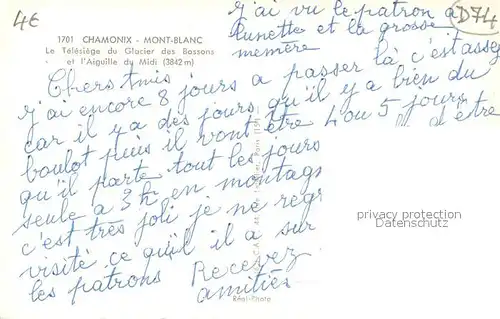 4€
D74
1701 CHAMONIX - MONT-BLANC
Le Télésiège du Glacier des Bossons
et l'Aiguille du Midi (3842 m)
j'ai vu le patron a
lunette et la grosse
memère
Chers
j'ai encore 8 jours a passer là c'est asseg
car il y a des jours qu'il y a bien du
boulot puis il vont être 4 ou 5 jours
qu'il parte tout les jours d être
seule a 3h en montags
c'est très joli je ne regr
visité ce qu'il a sur
les patrons Recevez
amitiés
privacy protection
Datenschutz
Réal-Photo